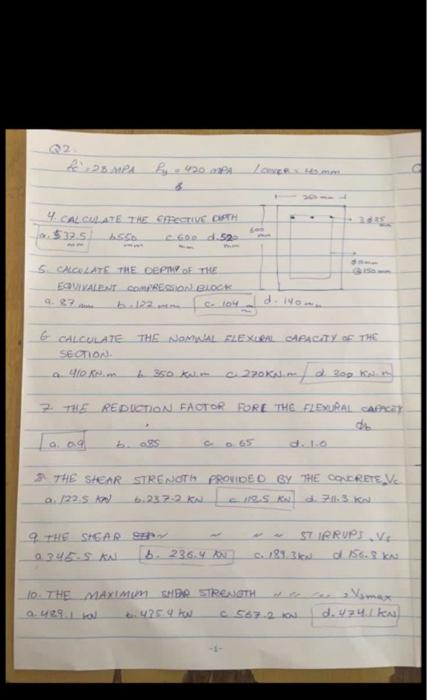 Q2.
fc' = 28 MPA fy = 420 MPA / COVER = 40 mm
250 mm
4. CALCULATE THE EFFECTIVE DEPTH
600 mm
3 ϕ 25
a. 537.5 mm b. 550 mm c. 600 mm d. 520 mm
@ 150 mm
5. CALCULATE THE DEPTH OF THE
EQUIVALENT COMPRESSION BLOCK
a. 87 mm b. 122 mm c. 104 mm d. 140 mm
6. CALCULATE THE NOMINAL FLEXURAL CAPACITY OF THE
SECTION.
a. 410 KN.m b. 350 KN.m c. 270 KN.m d. 300 KN.m
7. THE REDUCTION FACTOR FORE THE FLEXURAL CAPACITY
ϕb
a. 0.9 b. 0.85 c. 0.65 d. 1.0
8. THE SHEAR STRENGTH PROVIDED BY THE CONCRETE, Vc
a. 122.5 KN b. 237.2 KN c. 118.5 KN d. 711.3 KN
9. THE SHEAR ~ ~ ~ STIRRUPS, Vs
a. 345.5 KN b. 236.4 KN c. 189.3 KN d. 156.8 KN
10. THE MAXIMUM SHEAR STRENGTH ~ ~ ~, Vs max
a. 489.1 KN b. 435.4 KN c. 567.2 KN d. 474.1 KN
-1-